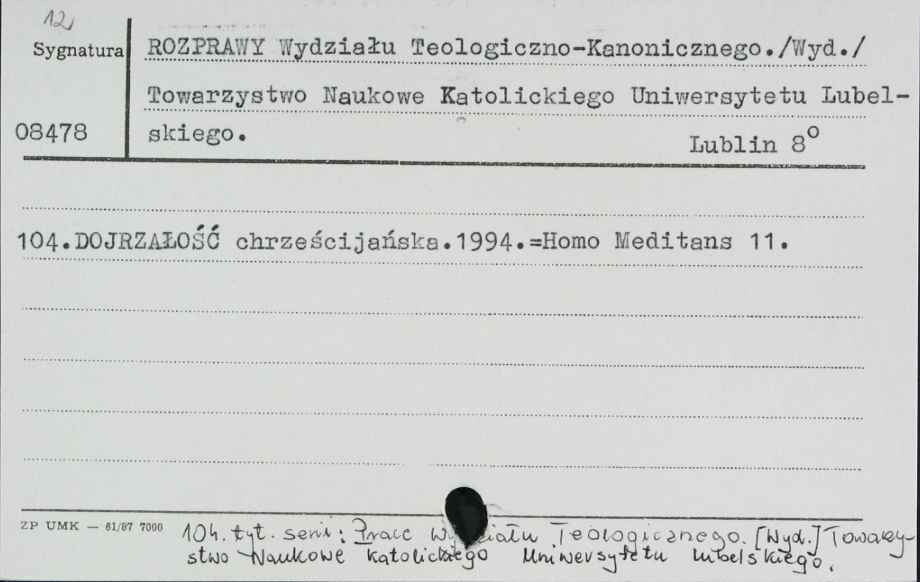 12,
Sygnatura
ROZPRAWY Wydziału Teologiczno-Kanonicznego./Wyd./
Towarzystwo Naukowe Katolickiego Uniwersytetu Lubel-
08478
skiego.
Lublin 8°
104.DOJRZAŁOŚĆ chrześcijańska.1994.=Homo Meditans 11.
ZP UMK — 61/87 7000
104. tyt. serii: Prace Wydziału Teologicznego. [Wyd.] Towarzy-
stwo Naukowe Katolickiego Uniwersytetu Lubelskiego.